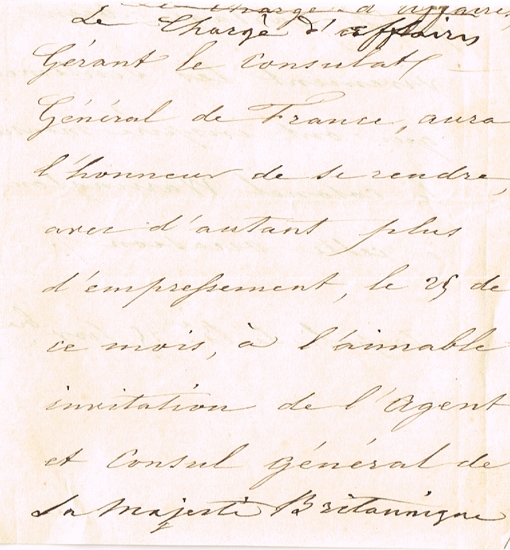 Le Chargé d'affaires
Le Chargé d'affaires
Gérant le Consulat
Général de France, aura
l'honneur de se rendre,
avec d'autant plus
d'empressement, le 25 de
ce mois, à l'aimable
invitation de l'Agent
et Consul général de
Sa Majesté Britannique